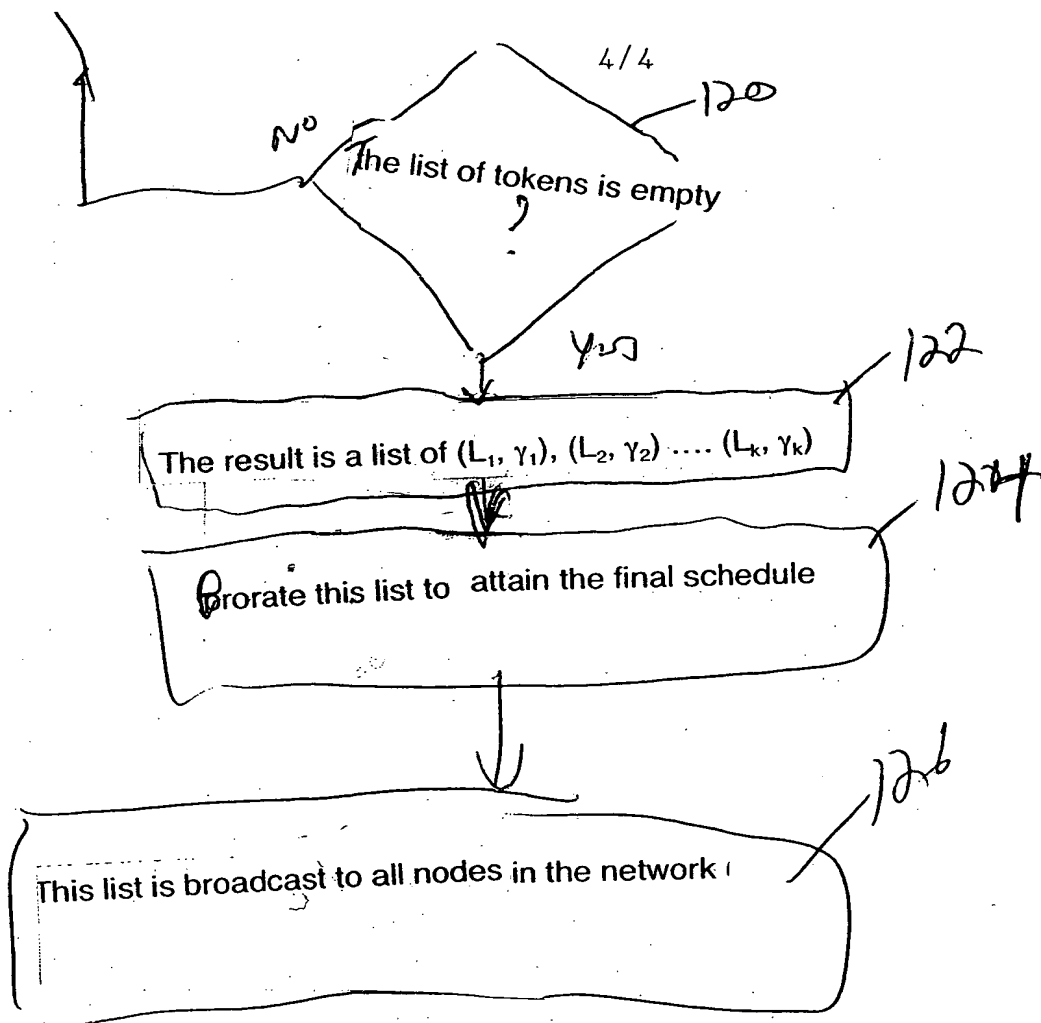 4/4
120
No
The list of tokens is empty
?
Yes
122
The result is a list of (L₁, γ₁), (L₂, γ₂) .... (Lₖ, γₖ)
124
Prorate this list to attain the final schedule
126
This list is broadcast to all nodes in the network